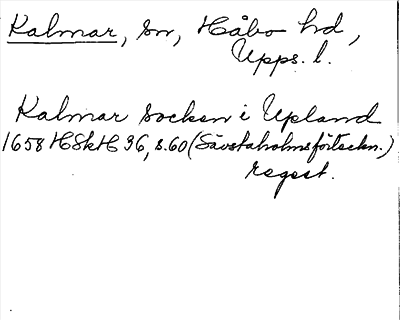 Kalmar, sn, Håbo hd,
Upps. l.
Kalmar socken i Upland
1658 HSkH 36, s. 60 (Sävstaholmsförteckn.)
regest.